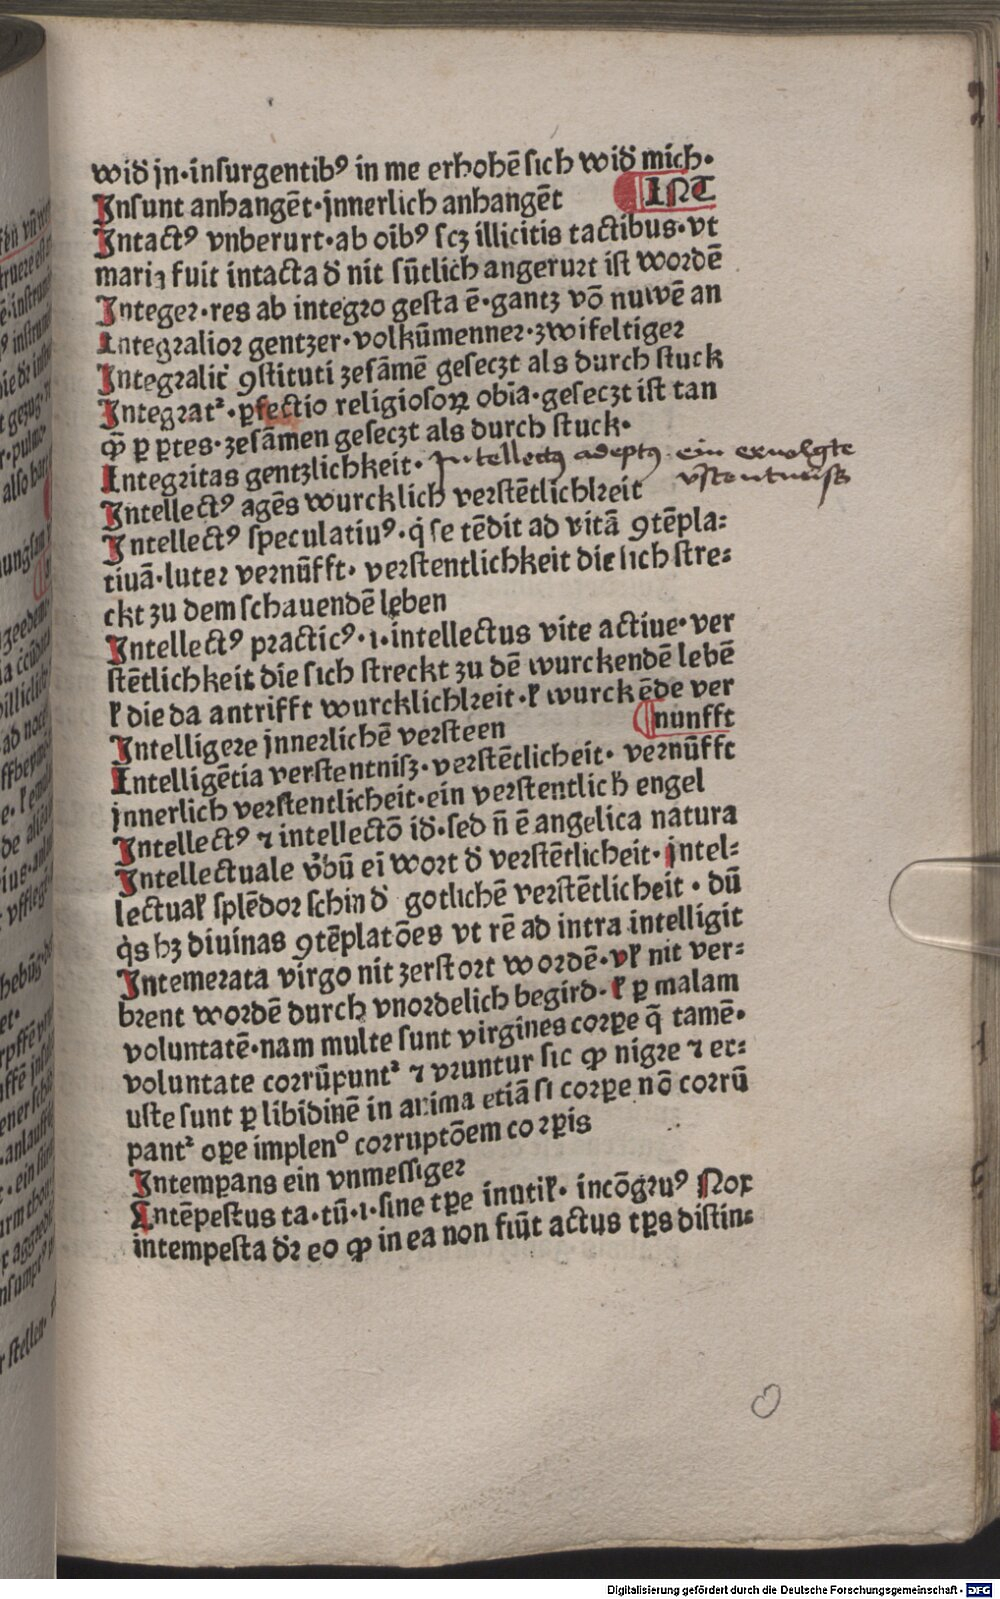 wid̄ jn·insurgentibꝰ in me erhohē sich wid̄ mich·
Insunt anhangēt·jnnerlich anhangēt
INT
Intactꝰ vnberurt·ab oībꝰ scȝ illicitis tactibus·vt
mariȝ fuit intacta d̄ nit sūtlich angerurt ist wordē
Integer·res ab integro gesta ē·gantz vō nuwē an
Integralior gentzer·volkūmenner·zwifeltiger
Integralit̄ ꝯstituti zesāmē geseczt als durch stuck
Integrat᷑·ꝑfectio religiosoꝝ obīa·geseczt ist tan
ꝙ̄ ꝑ ꝑtes·zesāmen geseczt als durch stuck·
Integritas gentzlichkeit·
Intellectꝰ adeptꝰ ein ervolgte
vstentnuß
Intellectꝰ agēs wurcklich verstētlichkeit
Intellectꝰ speculatiuꝰ·q̇ se tēdit ad vitā ꝯtēpla-
tiuā·luter vernūfft· verstentlichkeit die sich stre-
ckt zu dem schauendē leben
Intellectꝰ practicꝰ·i·intellectus vite actiue·ver
stētlichkeit die sich streckt zu dē wurckendē lebē
ł die da antrifft wurcklichkeit·ł wurckēde ver
nunfft
Intelligere jnnerlichē versteen
Intelligētia verstentnisz·verstētlicheit· vernūfft
jnnerlich verstentlicheit·ein verstentlich engel
Intellectꝰ ⁊ intellectō id̄·sed n̄ ē angelica natura
Intellectuale v̄bū ei wort d̄ verstētlicheit·intel-
lectuał splēdor schin d̄ gotlichē verstētlicheit·dū
q̇s hȝ diuinas ꝯtēplatōes vt rē ad intra intelligit
Intemerata virgo nit zerstort wordē·vł nit ver-
brent wordē durch vnordelich begird·ł ꝑ malam
voluntatē·nam multe sunt virgines corꝑe q̄ tamē·
voluntate corrūpunt᷑ ⁊ vruntur sic ꝙ nigre ⁊ er-
uste sunt ꝑ libidinē in anima etiā si corꝑe nō corrū
pant᷑ oꝑe implenº corruptōem corꝑis
Intemꝑans ein vnmessiger
Intēpestus ta·tū·i·sine tꝑe inutił· incōgruꝰ Nox
intempesta dr̄ eo ꝙ in ea non fiūt actus tꝑs distin-
Digitalisierung gefördert durch die Deutsche Forschungsgemeinschaft · DFG